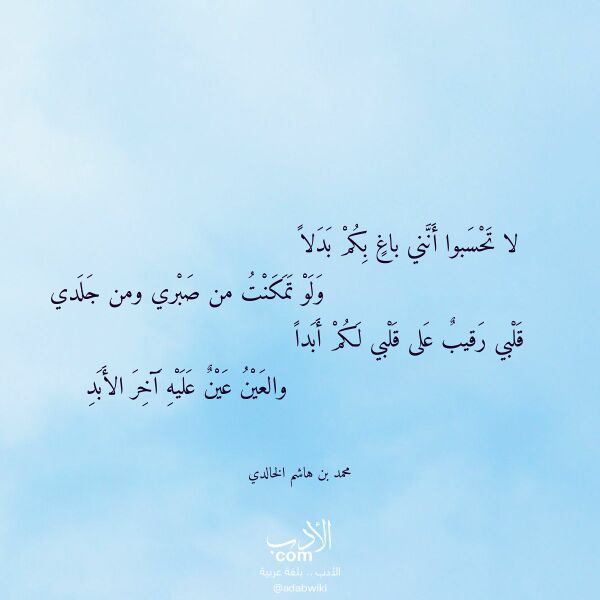 لا تَحْسَبوا أَنَّني باغٍ بِكُمْ بَدَلاً
وَلَوْ تَمَكَنْتُ من صَبْري ومن جَلَدي
قَلْبي رَقيبٌ عَلى قَلْبي لَكُمْ أَبَداً
والعَيْنُ عَيْنٌ عَلَيْهِ آخِرَ الأَبَدِ
محمد بن هاشم الخالدي
الأدب
.com
الأدب .. بلغة عربية
@adabwiki